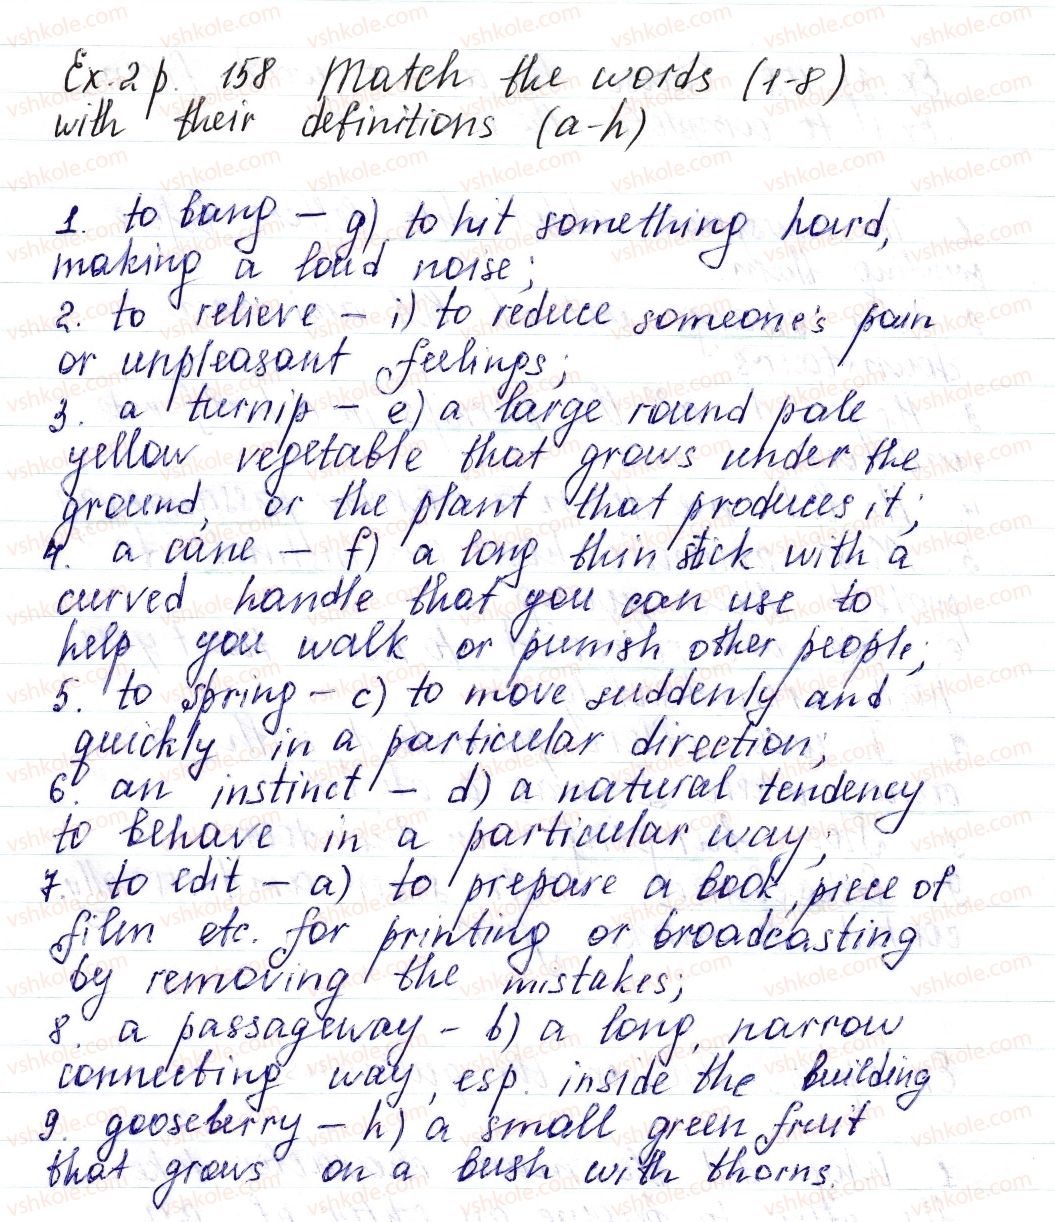 Ex. 2 p. 158 Match the words (1-8)
with their definitions (a-h)
1. to bang - g) to hit something hard,
making a loud noise;
2. to relieve - i) to reduce someone's pain
or unpleasant feelings;
3. a turnip - e) a large round pale
yellow vegetable that grows under the
ground, or the plant that produces it;
4. a cane - f) a long thin stick with a
curved handle that you can use to
help you walk or punish other people;
5. to spring - c) to move suddenly and
quickly in a particular direction;
6. an instinct - d) a natural tendency
to behave in a particular way;
7. to edit - a) to prepare a book, piece of
film etc. for printing or broadcasting
by removing the mistakes;
8. a passageway - b) a long, narrow
connecting way, esp. inside the building
9. gooseberry - h) a small green fruit
that grows on a bush with thorns.